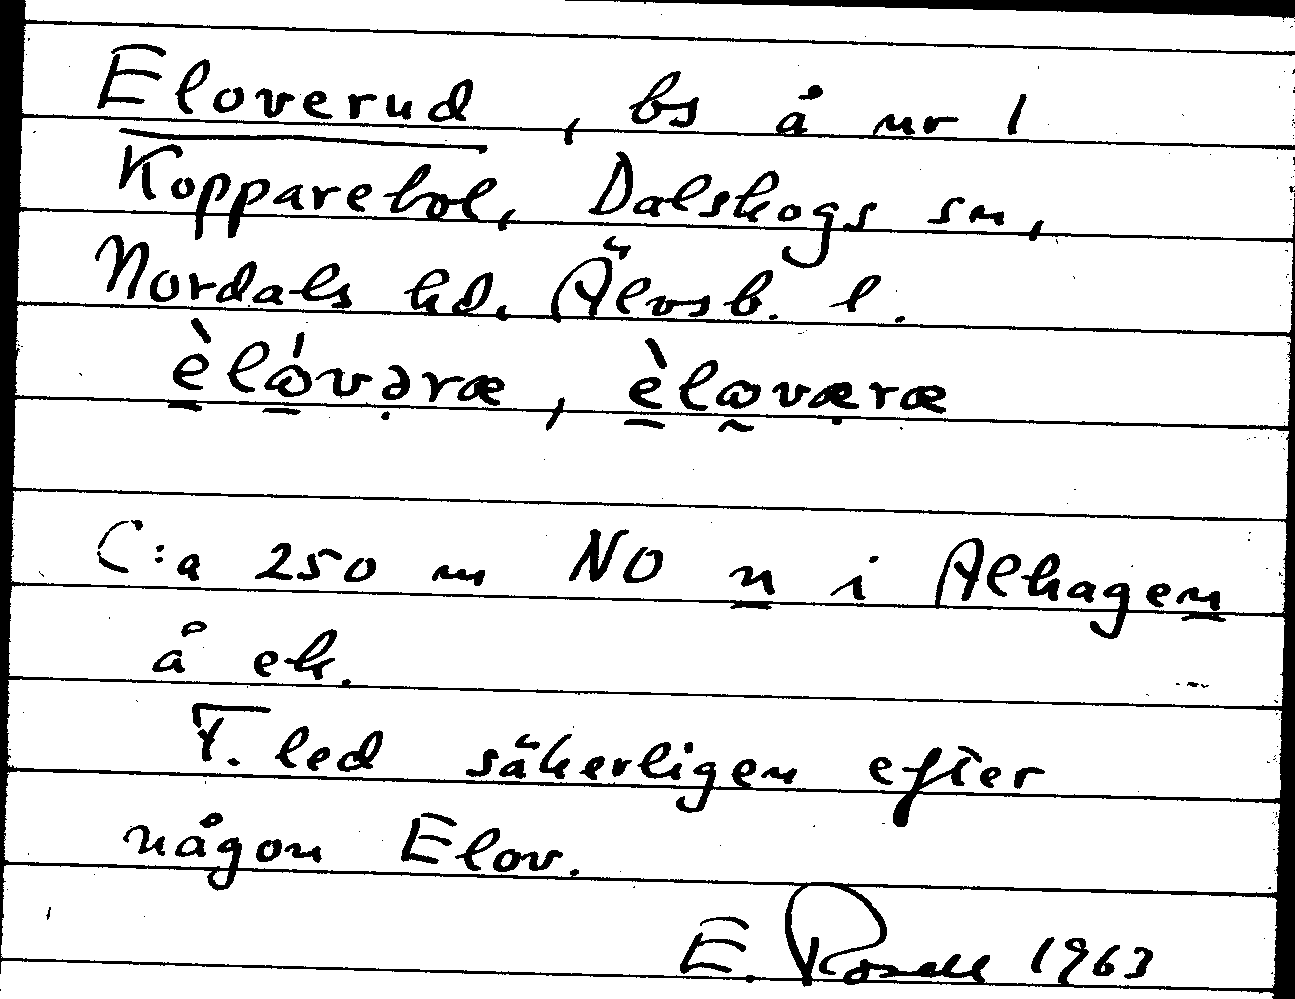 Eloverud, bs å nr 1
Kopparebol, Dalskogs sn,
Nordals hd. Älvsb. l.
èlåvəræ, èlåværæ
C:a 250 m NO n i Alhagen
å ek.
F. led säkerligen efter
någon Elov.
E. Rosell 1963